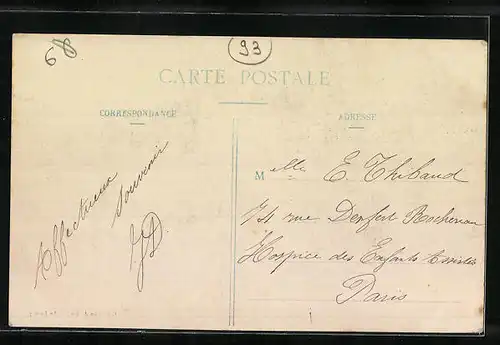 68
93
CARTE POSTALE
CORRESPONDANCE
ADRESSE
Affectueux
souvenir
JD
Melle E. Thibaud
74 rue Denfert Rochereau
Hospice des Enfants Assistés
Paris